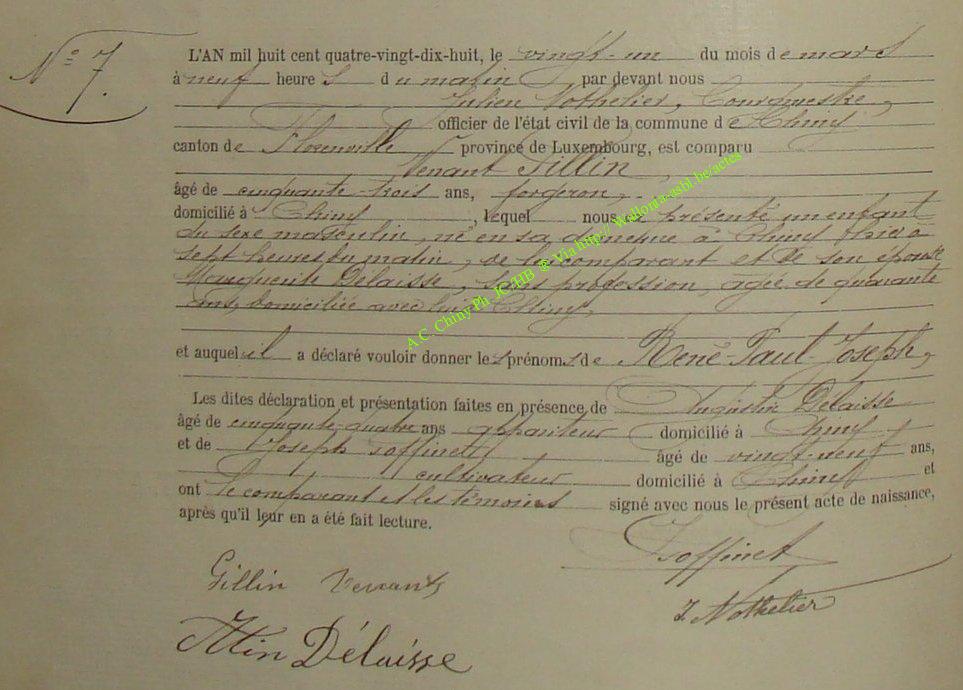 N° 7.
L'AN mil huit cent quatre-vingt-dix-huit, le vingt-un du mois de mars
à neuf heures du matin par devant nous
Julien Nothelier, Bourgmestre,
officier de l'état civil de la commune de Chiny
canton de Florenville province de Luxembourg, est comparu
Venant Gillin,
âgé de cinquante-trois ans, forgeron,
domicilié à Chiny, lequel nous a présenté un enfant
du sexe masculin, né en sa demeure à Chiny hier à
sept heures du matin, de lui comparant et de son épouse
Marguerite Délaisse, sans profession, agée de quarante
ans, domiciliée avec lui à Chiny,
et auquel il a déclaré vouloir donner les prénoms de René-Paul-Joseph,
Les dites déclaration et présentation faites en présence de Augustin Delaisse
âgé de cinquante-quatre ans appariteur domicilié à Chiny
et de Joseph Goffinet âgé de vingt-neuf ans,
cultivateur domicilié à Chiny et
ont le comparant et les témoins signé avec nous le présent acte de naissance,
après qu'il leur en a été fait lecture.
J Goffinet
Gillin Venant
J. Nothelier
Atin Délaisse
A.C. Chiny Ph. JC/HB @ Via http:// Wallonia-asbl.be/actes